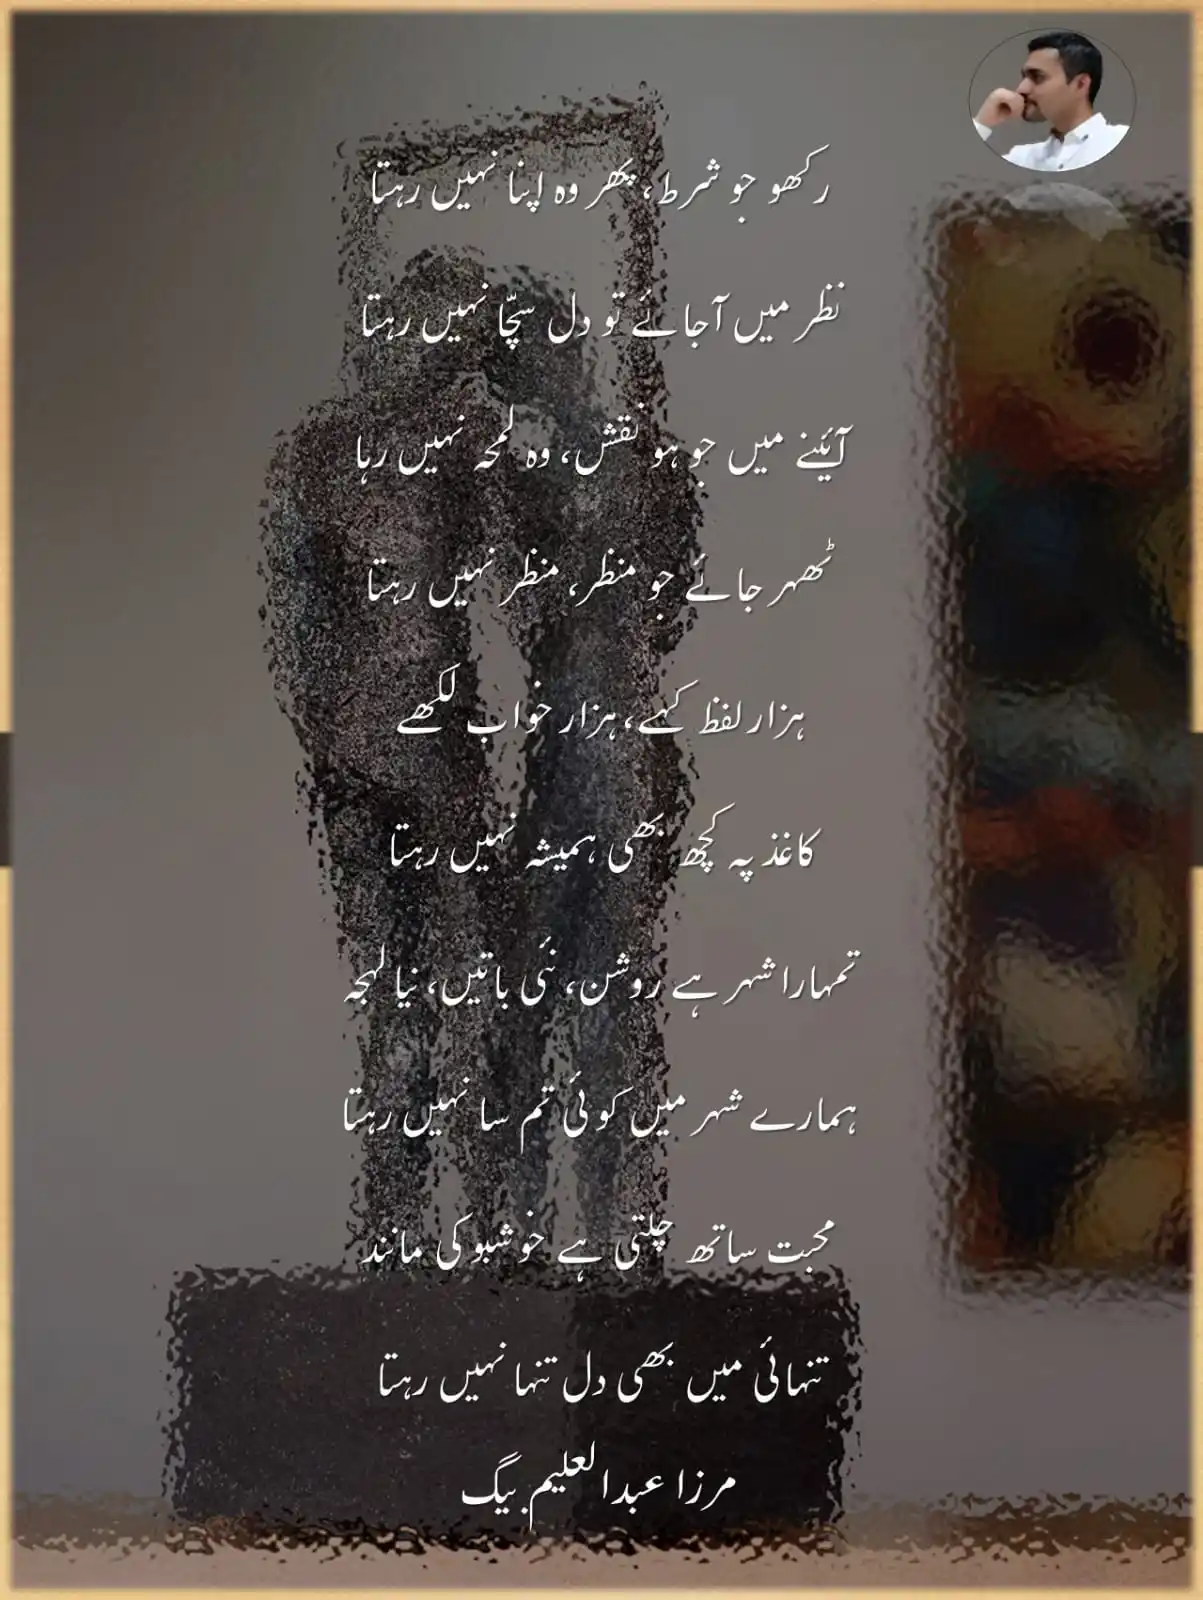 رکھو جو شرط، پھر وہ اپنا نہیں رہتا
نظر میں آجائے تو دل سچّا نہیں رہتا
آیئنے میں جو ہو نقش، وہ لمحہ نہیں رہا
ٹھہر جائے جو منظر، منظر نہیں رہتا
ہزار لفظ کہے، ہزار خواب لکھے
کاغذ پہ کچھ بھی ہمیشہ نہیں رہتا
تمہارا شہر ہے روشن، نئی باتیں، نیا لہجہ
ہمارے شہر میں کوئی تم سا نہیں رہتا
محبت ساتھ چلتی ہے خوشبو کی مانند
تنہائی میں بھی دل تنہا نہیں رہتا
مرزا عبدالعلیم بیگ